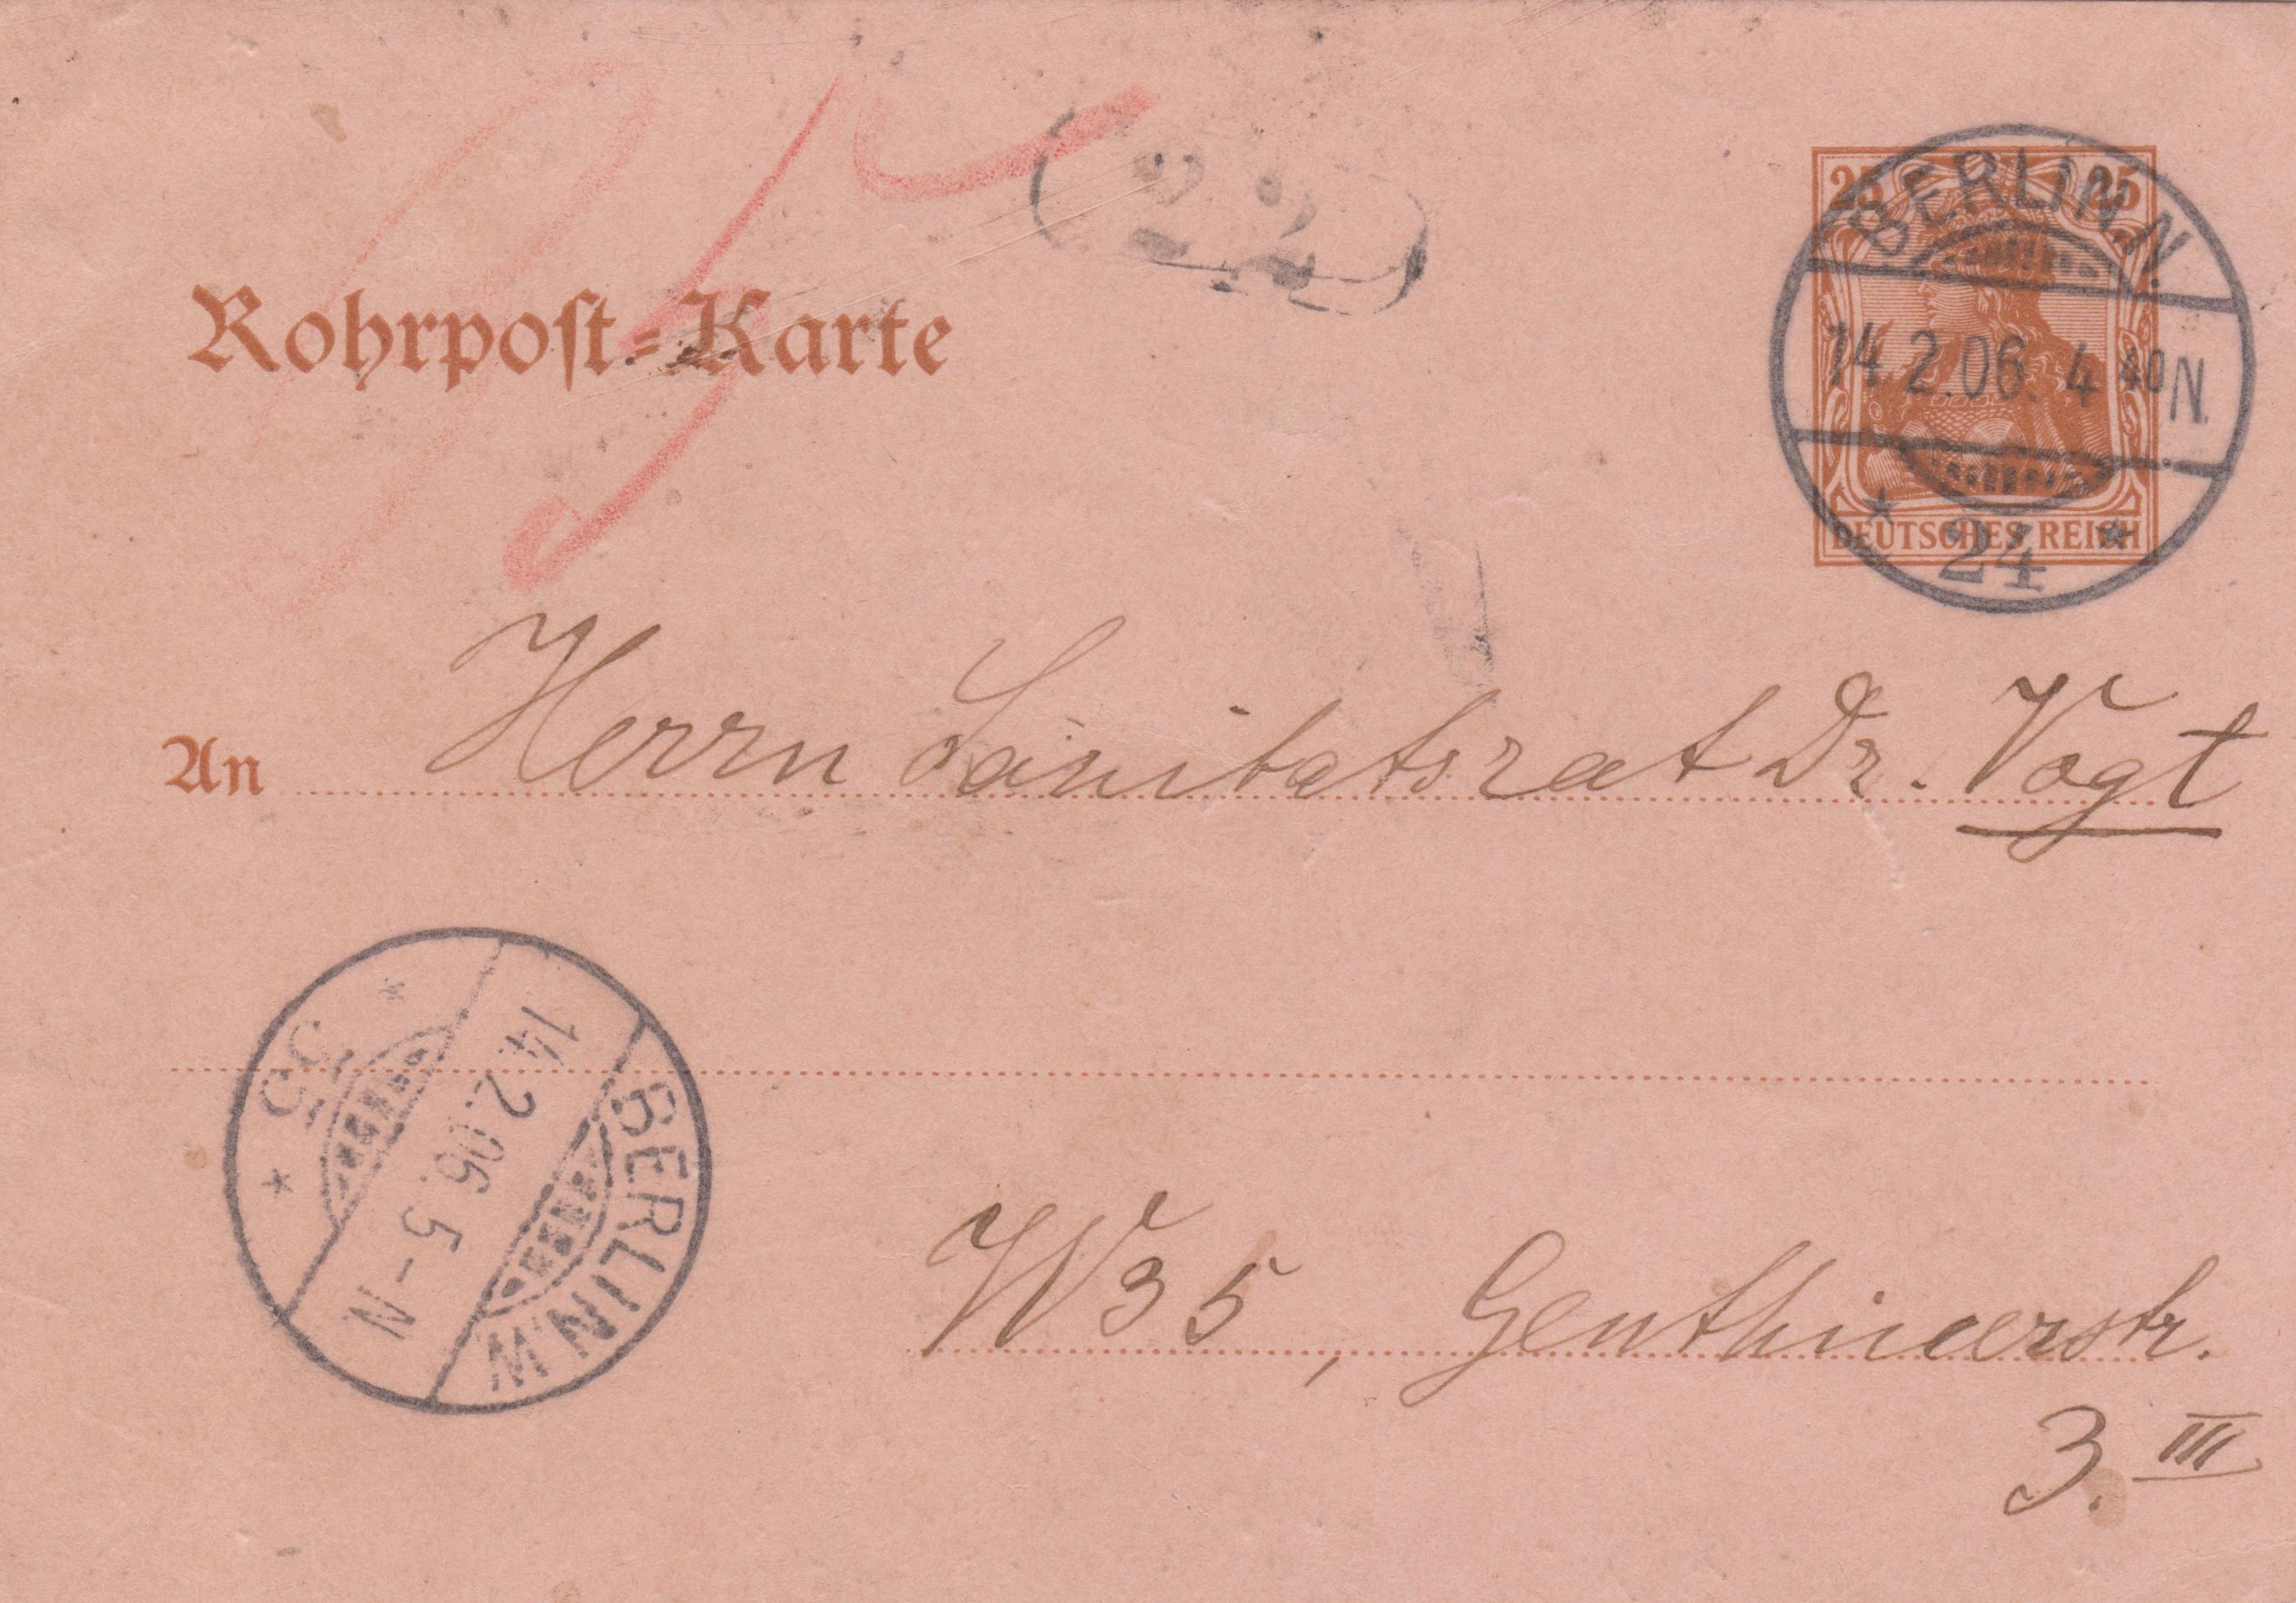 22
25 25
BERLIN.N.
14.2.06. 4 40N
DEUTSCHES REICH
* 24 *
Rohrpoſt-Karte
An Herrn Sanitätsrat Dr. Vogt
BERLIN.W
14.2.06. 5-N
W 35, Genthinerstr.
3. III